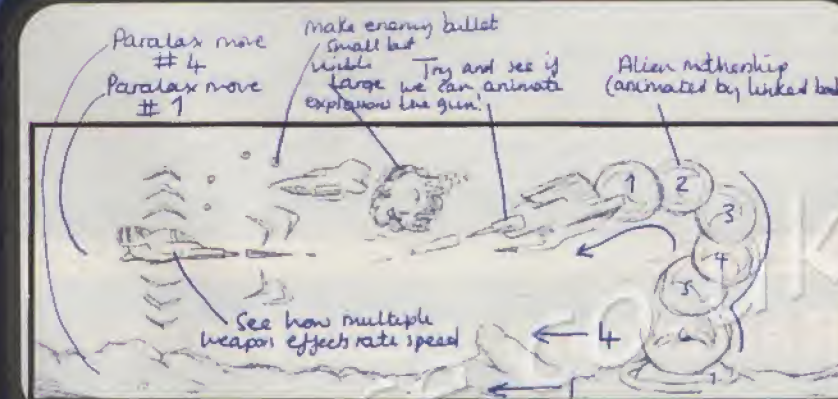 Paralax move
# 4
Paralax move
# 1
make enemy bullet
small but
visible
Large
explosion
Try and see if
we can animate
the gun!
Alien mothership
(animated by linked
1
2
3
4
5
6
7
See how multiple
weapon effects rate speed
4
1